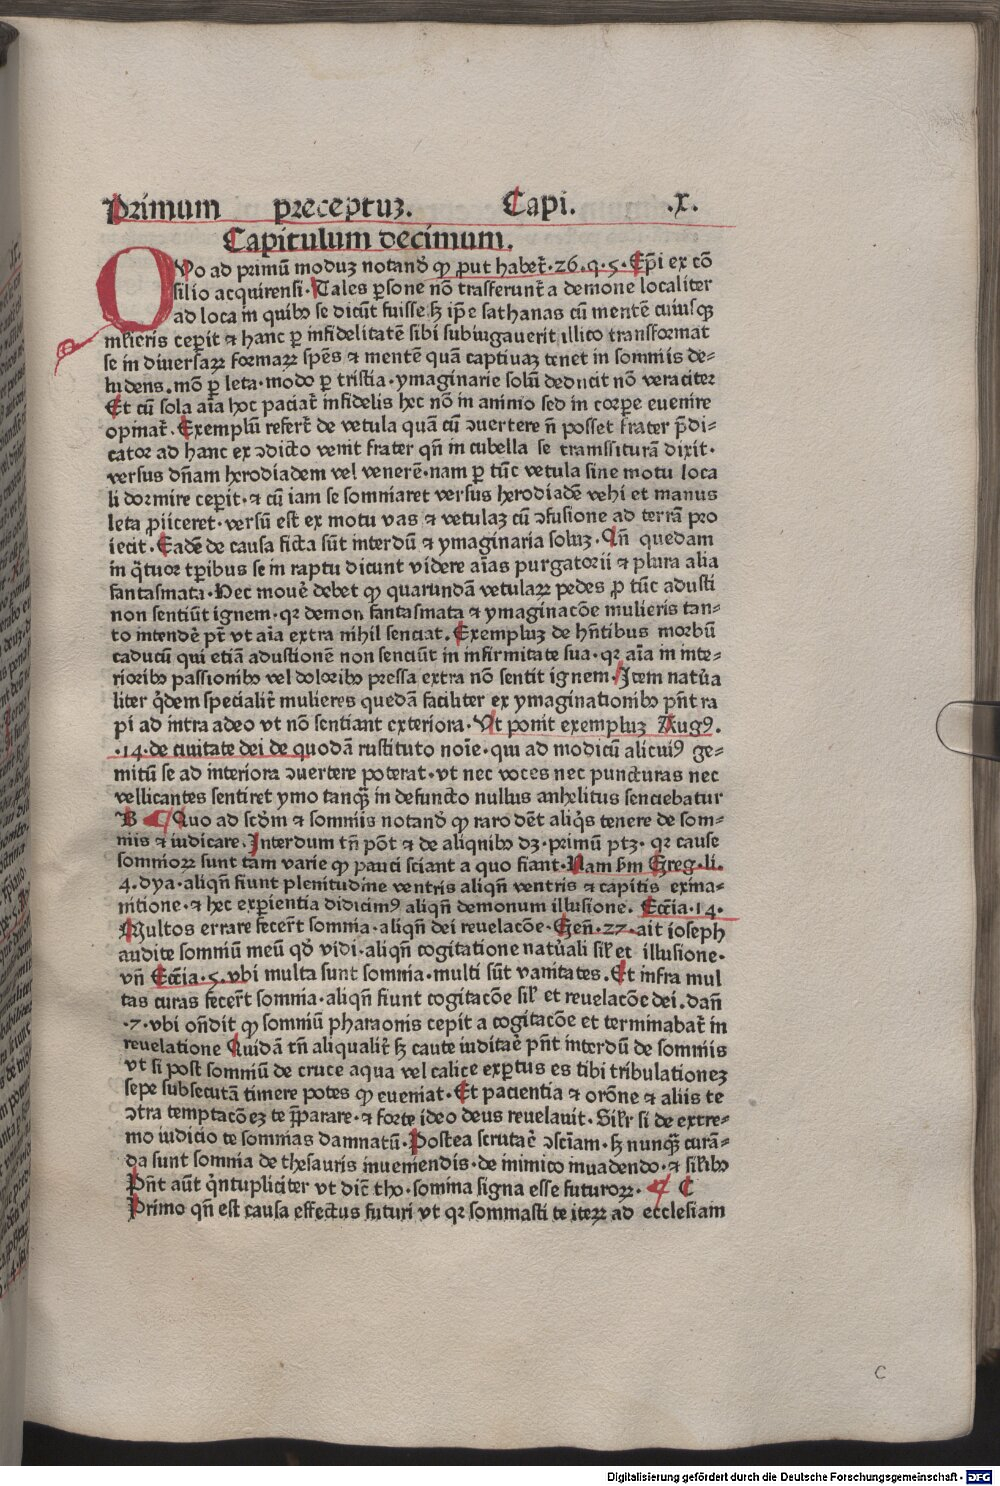 Primum preceptuꝫ. Capi. .x.
Capitulum decimum.
QVo ad primū moduꝫ notandꝰ ꝙ ꝓut habet̄. 26. q. 5. Ep̄i ex cō
silio acquirensi. Tales ꝑsone nō trāsferunt̄ a demone localiter
ad loca in quibꝰ se dicūt fuisse sꝫ ip̄e sathanas cū mentē cuiusqꝫ
mlieris ceꝑit ⁊ hanc ꝑ infidelitatē sibi subiugauerit illico transformat
se in diuersaꝝ formaꝝ sp̄es ⁊ mentē quā captiuaꝫ tenet in somniis de⸗
ludens. mō ꝑ leta. modo ꝑ tristia. ymaginarie solū deducit nō veraciter
Et cū sola aīa hoc paciat̄ infidelis hec nō in animo sed in corꝑe euenire
opinat̄. Exemplū refert̄ de vetula quā cū ↄuertere n̄ posset frater p̄di⸗
cator ad hanc ex ↄdicto venit frater qn̄ in cubella se transsiturā dixit.
versus dn̄am herodiadem vel venerē. nam ꝑ tūc vetula sine motu loca
li dormire ceꝑit. ⁊ cū iam se somniaret versus herodiadē vehi et manus
leta ꝓiiceret. versū est ex motu vas ⁊ vetulaꝫ cū ↄfusione ad terrā pro
iecit. Eadē de causa ficta sūt interdū ⁊ ymaginaria soluꝫ. Qn̄ quedam
in q̄tuor tꝑibus se in raptu dicunt videre aīas purgatorii ⁊ plura alia
fantasmata. Nec mouē debet ꝙ quarundā vetulaꝝ pedes ꝓ tūc adusti
non sentiūt ignem. qꝛ demon fantasmata ⁊ ymaginacōe mulieris tan⸗
to intendē pt̄ vt aīa extra nihil senciat. Exempluꝫ de hn̄tibus morbū
caducū qui etiā adustionē non senciūt in infirmitate sua. qꝛ aīa in inte⸗
rioribꝰ passionibꝰ vel doloribꝰ pressa extra nō sentit ignem. Item natūa
liter q̄dem specialit̄ mulieres quedā faciliter ex ymaginationibꝰ pn̄t ra
pi ad intra adeo vt nō sentiant exteriora. Vt ponit exempluꝫ Augꝰ.
.14. de ciuitate dei de quodā rustituto noīe. qui ad modicū alicuiꝰ ge⸗
mitū se ad interiora ↄuertere poterat. vt nec voces nec puncturas nec
vellicantes sentiret ymo tanqꝫ in defuncto nullus anhelitus senciebatur
B Quo ad scd̄m ⁊ somniis notandꝰ ꝙ raro dēt aliq̄s tenere de som⸗
niis ⁊ iudicare. Interdum tn̄ pōt ⁊ de aliqnibꝰ dꝫ. primū ptꝫ. qꝛ cause
somnioꝝ sunt tam varie ꝙ pauci sciant a quo fiant. Nam ẜm Greg. li.
4. dya. aliqn̄ fiunt plenitudine ventris aliqn̄ ventris ⁊ capitis exina⸗
nitione. ⁊ hec exꝑientia didicimꝰ aliqn̄ demonum illusione. Ecc̄ia. 14.
Multos errare fecert̄ somnia. aliqn̄ dei reuelacōe. Gen̄. 27. ait ioseph
audite somniū meū qd̓ vidi. aliqn̄ cogitatione natūali sil̓ et illusione.
vn̄ Ecc̄ia. 5. vbi multa sunt somnia. multi sūt vanitates. Et infra mul
tas curas fecert̄ somnia. aliqn̄ fiunt cogitacōe sil̓ et reuelacōe dei. dan̄
.7. vbi on̄dit ꝙ somniū pharaonis cepit a cogitacōe et terminabat̄ in
reuelatione Quidā tn̄ aliqualit̄ sꝫ caute iuditaē pn̄t interdū de somniis
vt si post somniū de cruce aqua vel calice exꝑtus es tibi tribulationeꝫ
sepe subsecutā timere potes ꝙ eueniat. Et pacientia ⁊ orōne ⁊ aliis te
ↄtra temptacōeꝫ te p̄parare. ⁊ forte ideo deus reuelauit. Sil̓r si de extre⸗
mo iudicio te somnias damnatū. Postea scrutaē ↄsciam. sꝫ nunqꝫ curā⸗
da sunt somnia de thesauris inueniendis. de inimico inuadendo. ⁊ sil̓ibꝰ
Pn̄t aūt q̄ntupliciter vt dic̄ tho. somina signa esse futuroꝝ. C
Primo qn̄ est causa effectus futuri vt qꝛ somniasti te iteꝝ ad ecclesiam
C
Digitalisierung gefördert durch die Deutsche Forschungsgemeinschaft - DFG